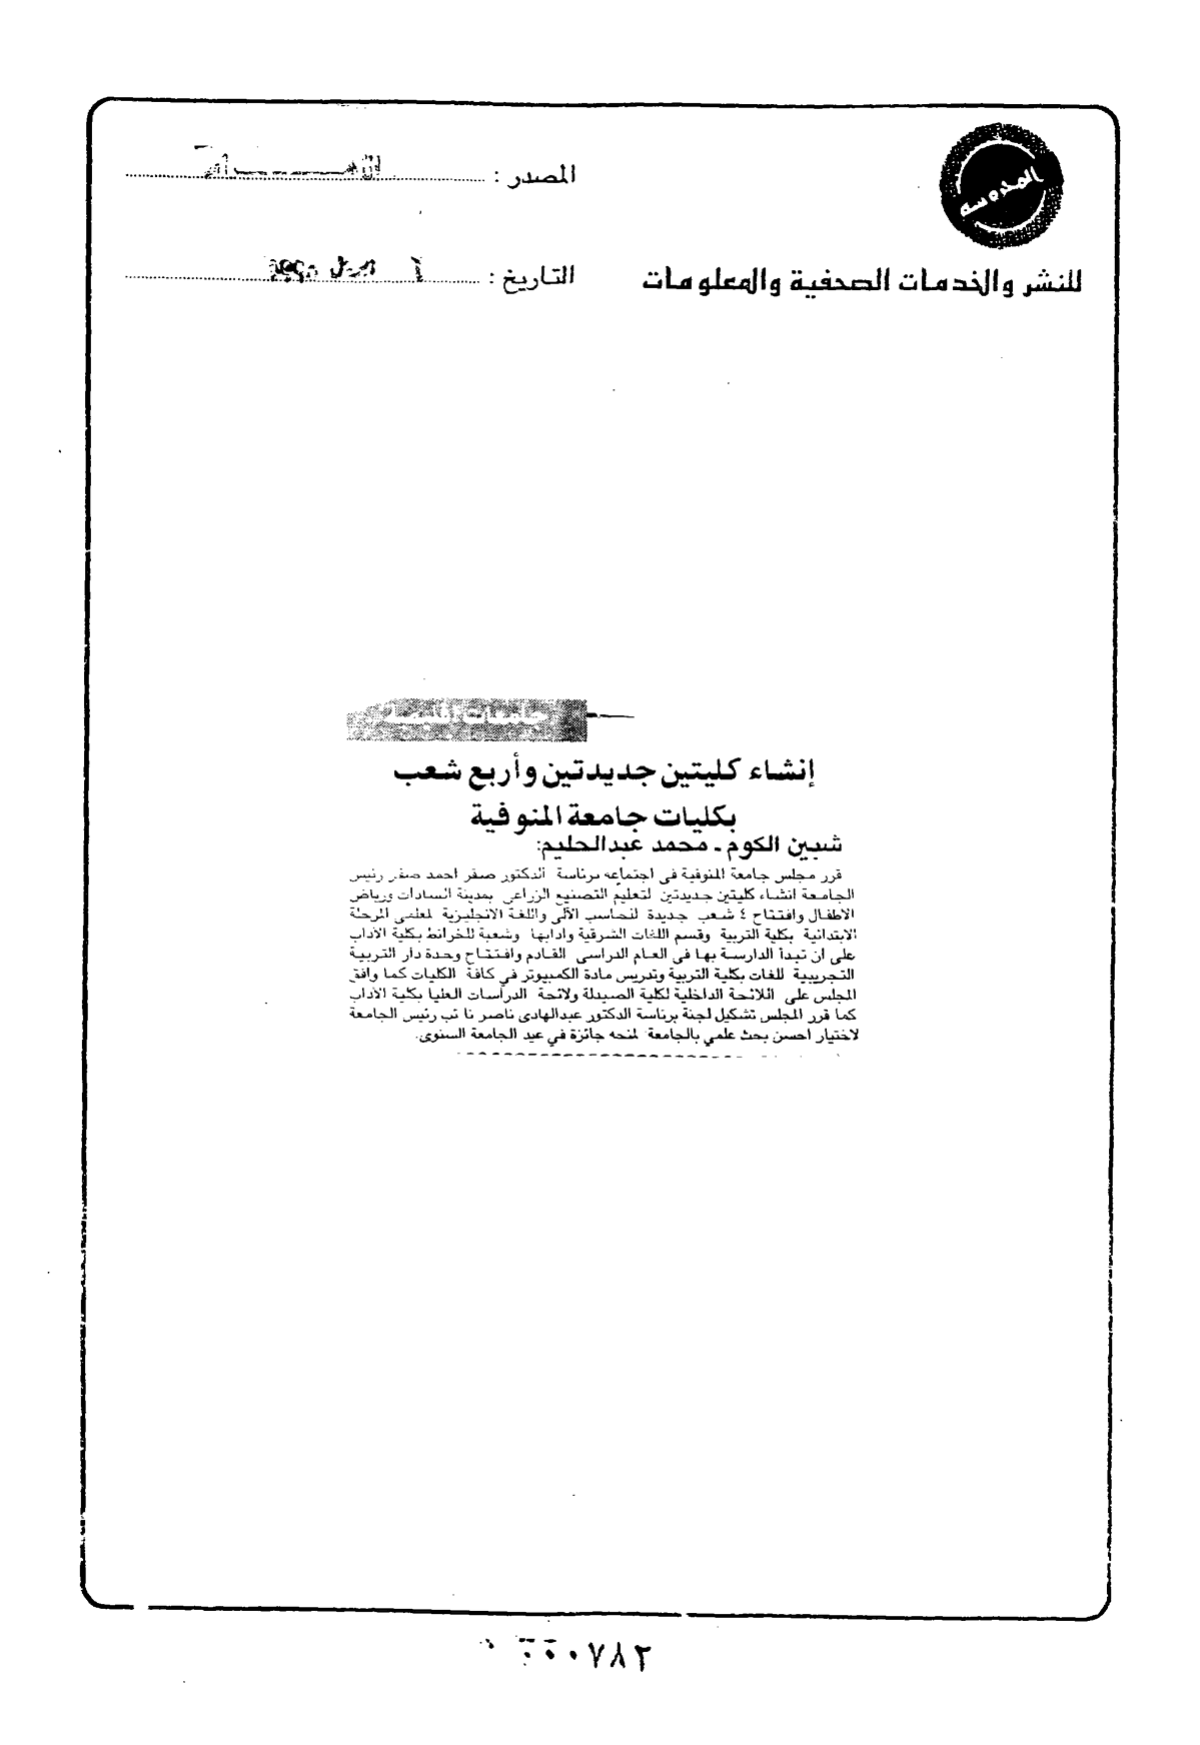 المحروسة
المصدر :
للنشر والخدمات الصحفية والمعلومات
التاريخ :
إنشاء كليتين جديدتين وأربع شعب
بكليات جامعة المنوفية
شبين الكوم ـ محمد عبدالحليم:
قرر مجلس جامعة المنوفية فى اجتماعه برئاسة الدكتور صقر احمد صقر رئيس
الجامعة انشاء كليتين جديدتين لتعليم التصنيع الزراعى بمدينة السادات ورياض
الاطفال وافتتاح ٤ شعب جديدة للحاسب الآلى واللغة الانجليزية لمعلمى المرحلة
الابتدائية بكلية التربية وقسم اللغات الشرقية وادابها وشعبة للخرائط بكلية الآداب
على ان تبدأ الدارسة بها فى العام الدراسى القادم وافتتاح وحدة دار التربية
التجريبية للغات بكلية التربية وتدريس مادة الكمبيوتر في كافة الكليات كما وافق
المجلس على اللائحة الداخلية لكلية الصيدلة ولائحة الدراسات العليا بكلية الآداب
كما قرر المجلس تشكيل لجنة برئاسة الدكتور عبدالهادى ناصر نائب رئيس الجامعة
لاختيار احسن بحث علمي بالجامعة لمنحه جائزة في عيد الجامعة السنوى.